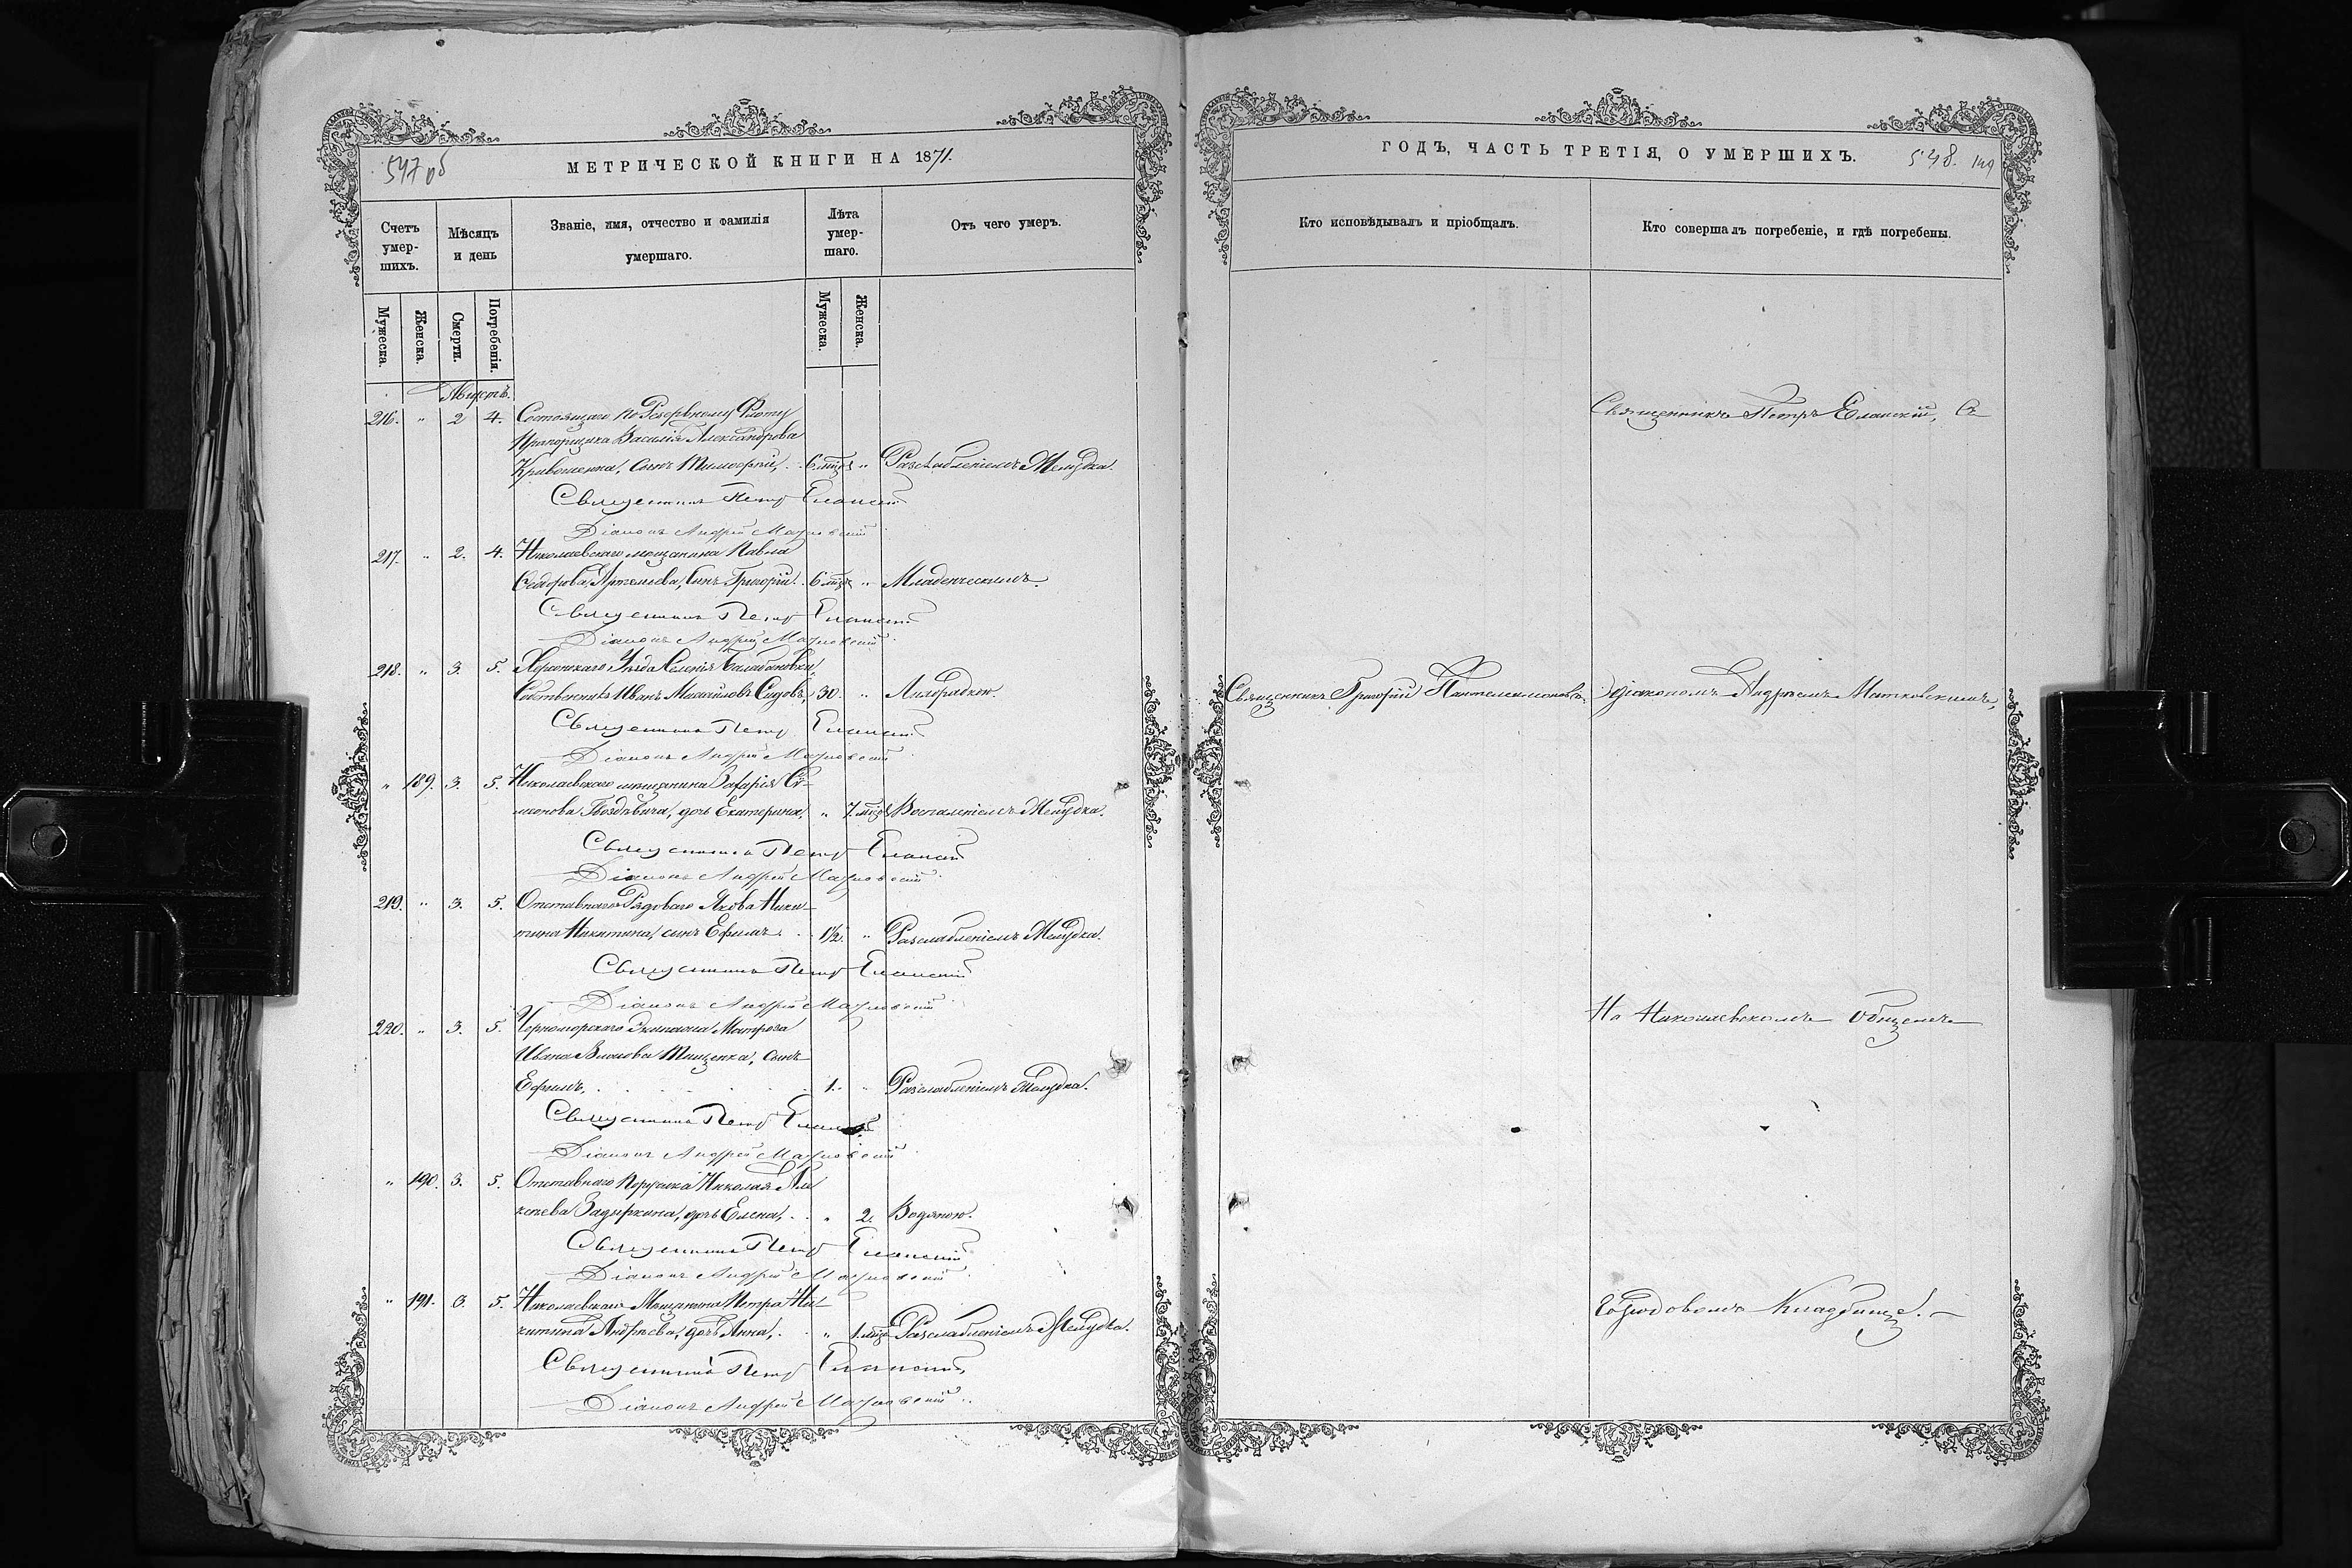 547 об
МЕТРИЧЕСКОЙ КНИГИ НА 1871.
Счетъ умер-шихъ.
Мѣсяцъ и день
Званіе, имя, отчество и фамилія умершаго.
Лѣта умер-шаго.
Отъ чего умеръ.
Мужеска.
Женска.
Смерти.
Погребенія.
Мужеска.
Женска.
Августъ.
216. " 2 4. Состоящаго по Резервному Флоту
Прапорщика Василія Александрова
сынъ Тимофей, 6 мцѣ " Разслабленіемъ Желудка.
Священникъ Петръ Еланскій
Діаконъ Андрей Матковскій
217. " 2. 4. Николаевскаго мещанина Павла
Федорова Артемьева, сынъ Григорій. 6 мцѣ " Младенческимъ.
Священникъ Петръ Еланскій
Діаконъ Андрей Матковскій
218. " 3. 5. Херсонскаго Уѣзда Селенія Балабановки
Собственникъ Иванъ Михайловъ 30. " Лихорадкою.
Священникъ Петръ Еланскій
Діаконъ Андрей Матковскій
" 189. 3. 5. Николаевскаго мещанина Захарія Си-
монова дочь Екатерина, " 7. мцѣ Воспаленіемъ Желудка.
Священникъ Петръ Еланскій
Діаконъ Андрей Матковскій
219. " 3. 5. Отставнаго Рядоваго Якова Ники-
тина Никитина, сынъ Ефимъ. 1½. " Разслабленіемъ Желудка.
Священникъ Петръ Еланскій
Діаконъ Андрей Матковскій
220. " 3. 5. Черноморскаго Экипажа Матроса
Ивана Тищенка, сынъ
Ефимъ, 1. " Разслабленіемъ Желудка.
Священникъ Петръ Еланскій
Діаконъ Андрей Матковскій
" 190. 3. 5. Отставнаго Николая Але
ксѣева дочь Елена, " 2. Водяною.
Священникъ Петръ Еланскій
Діаконъ Андрей Матковскій
" 191. 3. 5. Николаевскаго Мещанина Петра Ни-
китина Андреева, дочь Анна, " 1. мцѣ Разслабленіемъ Желудка.
Священникъ Петръ Еланскій
Діаконъ Андрей Матковскій
ГОДЪ, ЧАСТЬ ТРЕТІЯ, О УМЕРШИХЪ.
548.
Кто исповѣдывалъ и пріобщалъ.
Кто совершалъ погребеніе, и гдѣ погребены.
Священникъ Петръ Еланскій, съ
Священникъ Григорій Пантелеимоновъ
діакономъ Андреемъ Матковскимъ,
На Николаевскомъ общемъ
Городовомъ Кладбище. —